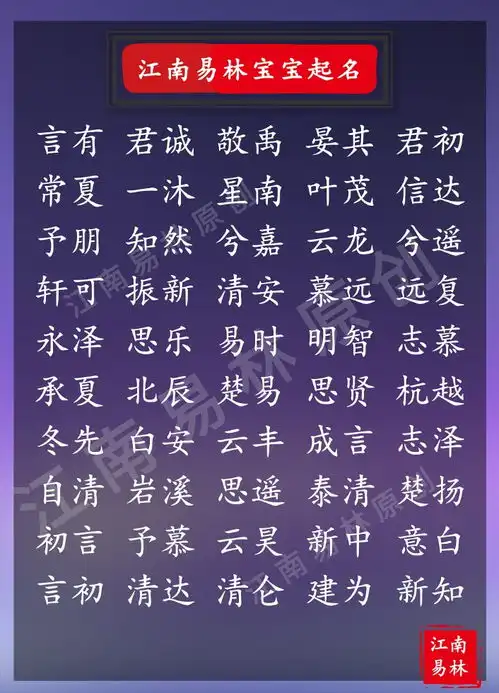 江南易林宝宝起名
言有 君诚 敬禹 晏其 君初
常夏 一沐 星南 叶茂 信达
予朋 知然 兮嘉 云龙 兮遥
轩可 振新 清安 慕远 远复
永泽 思乐 易时 明智 志慕
承夏 北辰 楚易 思贤 杭越
冬先 白安 云丰 成言 志泽
自清 岩溪 思遥 泰清 楚扬
初言 予慕 云昊 新中 意白
言初 清达 清仑 建为 新知
江南易林原创
江南易林原创
江南易林原创
江南
易林